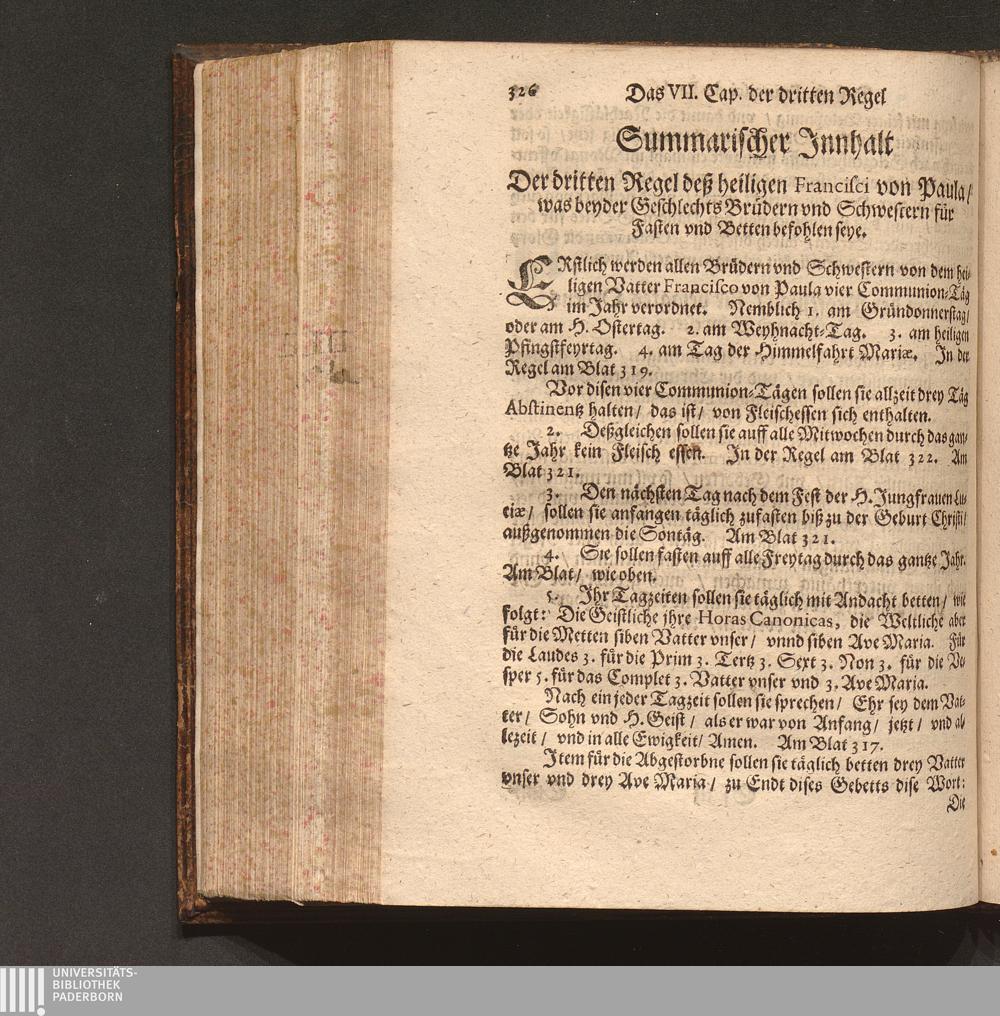 326 Das VII. Cap. der dritten Regel
Summarischer Innhalt
Der dritten Regel deß heiligen Francisci von Paula /
was beyder Geschlechts Brüdern vnd Schwestern für
Fasten vnd Betten befohlen seye.
ERstlich werden allen Brüdern vnd Schwestern von dem hei-
ligen Vatter Francisco von Paula vier Communion-Täg
im Jahr verordnet. Nemblich 1. am Gründonnerstag /
oder am H. Ostertag. 2. am Weyhnacht-Tag. 3. am heiligen
Pfingstfeyrtag. 4. am Tag der Himmelfahrt Mariæ. In der
Regel am Blat 319.
Vor disen vier Communion-Tägen sollen sie allzeit drey Täg
Abstinentz halten / das ist / von Fleischessen sich enthalten.
2. Deßgleichen sollen sie auff alle Mitwochen durch das gan-
tze Jahr kein Fleisch essen. In der Regel am Blat 322. Am
Blat 321.
3. Den nächsten Tag nach dem Fest der H. Jungfrauen Lu-
ciæ / sollen sie anfangen täglich zufasten biß zu der Geburt Christi /
außgenommen die Sontäg. Am Blat 321.
4. Sie sollen fasten auff alle Freytag durch das gantze Jahr.
Am Blat / wie oben.
5. Ihr Tagzeiten sollen sie täglich mit Andacht betten / wie
folgt: Die Geistliche jhre Horas Canonicas, die Weltliche aber
für die Metten siben Vatter vnser / vnnd siben Ave Maria. Für
die Laudes 3. für die Prim 3. Tertz 3. Sext 3. Non 3. für die Ve-
sper 5. für das Complet 3. Vatter vnser vnd 3. Ave Maria.
Nach ein jeder Tagzeit sollen sie sprechen / Ehr sey dem Vat-
ter / Sohn vnd H. Geist / als er war von Anfang / jetzt / vnd al-
lezeit / vnd in alle Ewigkeit / Amen. Am Blat 317.
Item für die Abgestorbne sollen sie täglich betten drey Vatter
vnser vnd drey Ave Maria / zu Endt dises Gebetts dise Wort:
Die
UNIVERSITÄTS-
BIBLIOTHEK
PADERBORN